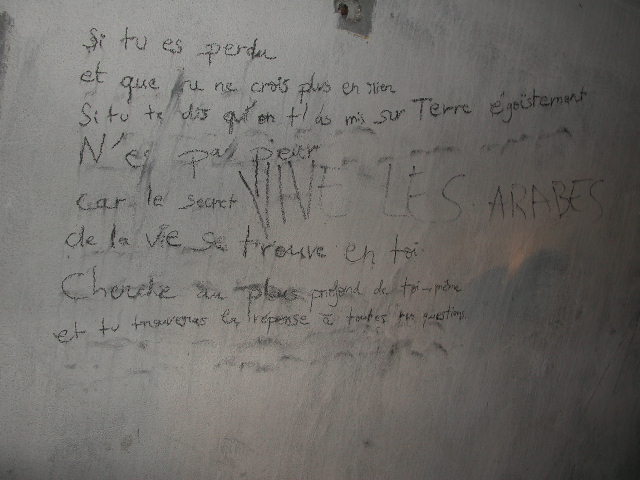 Si tu es perdu
et que tu ne crois plus en rien
Si tu te dis qu'on t'as mis sur Terre égoïstement
N'es pas peur
car le secret
VIVE LES ARABES
de la vie se trouve en toi
Cherche au plus profond de toi-même
et tu trouveras la réponse à toutes tes questions.